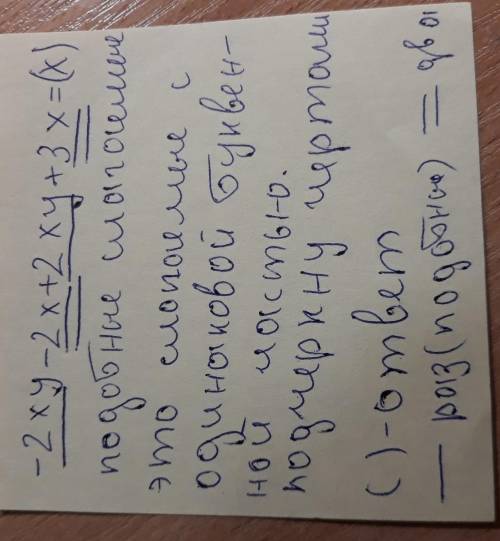 -2xy-2x+2xy+3x=(x)
подобные слагаемые
это слагаемые с
одинаковой буквен-
ной частью.
подчеркну чертами
( )-ответ
— раз(подобные) = два